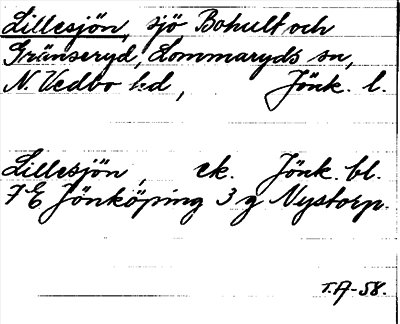 Lillesjön, sjö Bohult och
Gränseryd, Lommaryds sn,
N. Vedbo hd, Jönk. l.
Lillesjön, ek. Jönk. bl.
7E Jönköping 3 g Nystorp.
T.A-58.